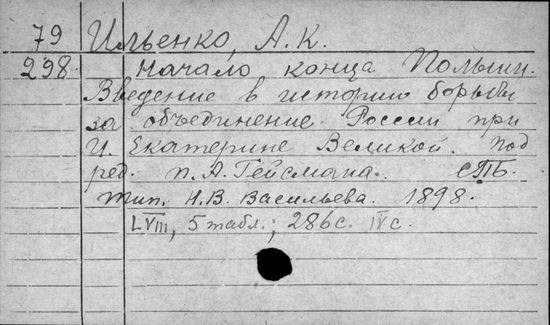 79 Ильенко, А.К.
298. Начало конца Польши.
Введение в историю борьбы
за объединение России при
И. Екатерине Великой. Под
ред. П.А. Гейсмана. СПБ.
тип. Н.В. Васильева. 1898.
LVIII, 5 табл.; 286с. IVс.